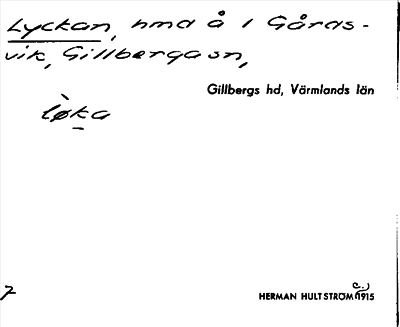 Lyckan, hmd å 1 Gårds-
vik, Gillbergasn,
Gillbergs hd, Värmlands län
lø̀ka
7
HERMAN HULTSTRÖM c.) 1915